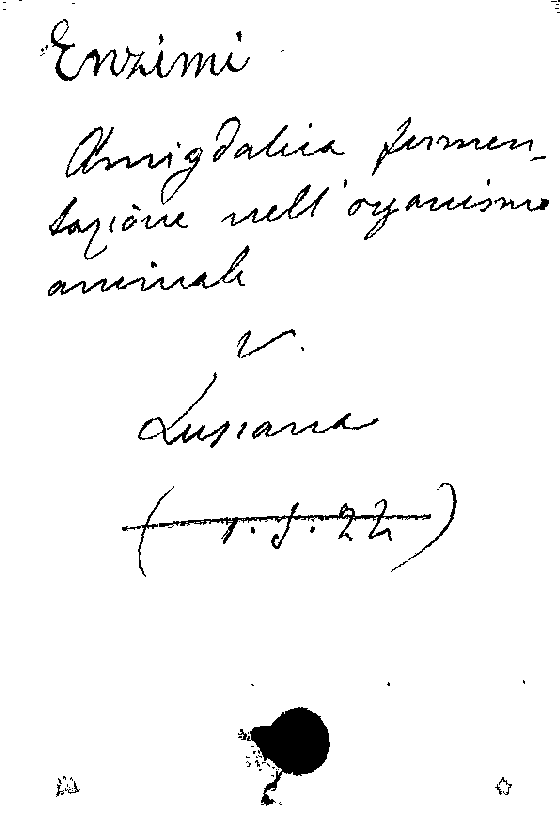 Enzimi
Amigdalica fermen-
tazione nell'organismo
animale
V.
Lussana
(1.5.22)